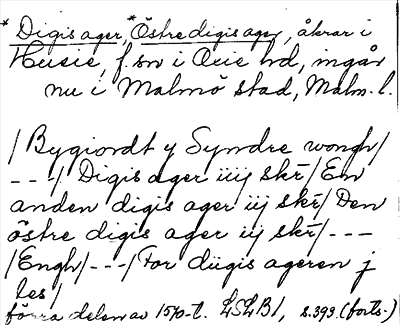 * Digis ager, * Östre digis ager, åkrar i
Husie, f. sn i Oxie hd, ingår
nu i Malmö stad, Malm. l.
/ Bygiordt y Syndre wongh /
- - - / Digis ager iiij skr̄ / Em
anden digis ager iij skr̄ / Den
östre digis ager iij skr̄ / - - -
/ Engh / - - - / For diigis ageren j
les /
förra delen av 1570-t. LSLB1, s. 393. (forts.)